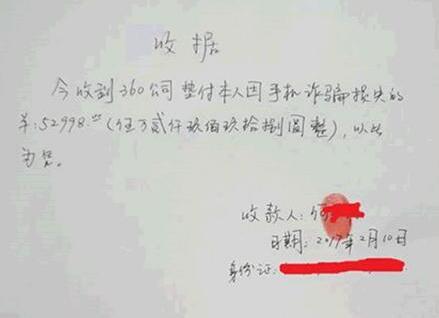 收据
今收到360公司垫付本人因手机诈骗损失的
￥:52998.00(伍万贰仟玖佰玖拾捌圆整),以此
为凭。
收款人:何
日期:2017年2月10日
身份证: